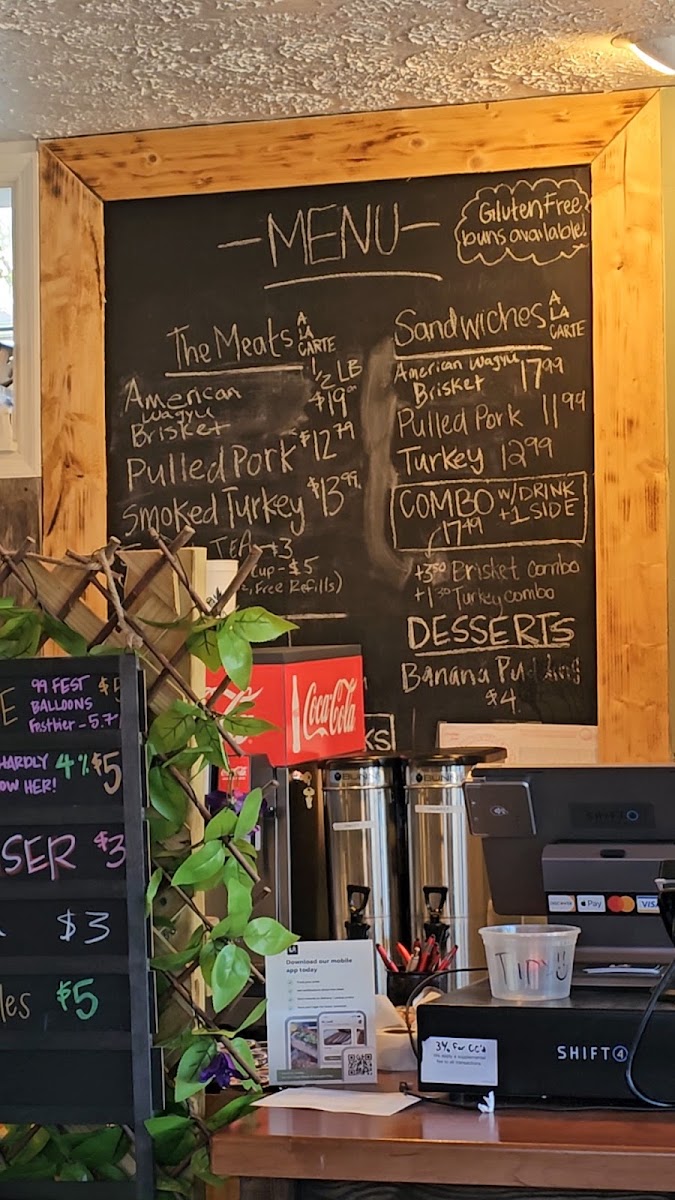 -MENU-
Gluten Free
buns available!
The Meats A LA CARTE
1/2 LB
American
wagyu
Brisket
$19
Pulled Pork $12 79
Smoked Turkey $13 99
TEA $3
Cup - $5
Free Refills)
Sandwiches A LA CARTE
American Wagyu
Brisket 17 99
Pulled Pork 11 99
Turkey 12 99
COMBO W/ DRINK
+1 SIDE
17 49
+3 50 Brisket combo
+1 50 Turkey combo
DESSERTS
Banana Pudding
$4
99 FEST
BALLOONS
$5
HARDLY
4% $5
HER!
SER $3
$3
les $5
Coca-Cola
BUNN
BUNN
SHIFT4
DISCOVER Pay VISA
Tips
Download our mobile
app today
3% For CC's
SHIFT4